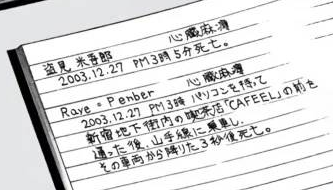 心臓麻痺
盗見 米吾郎
2003.12.27 PM3時5分死亡。
心臓麻痺
Raye = Penber
2003.12.27 PM3時 パソコンを持って
新宿地下街内の喫茶店「CAFEEL」の前を
通った後、山手線に乗車し、
その車両から降りた3秒後死亡。